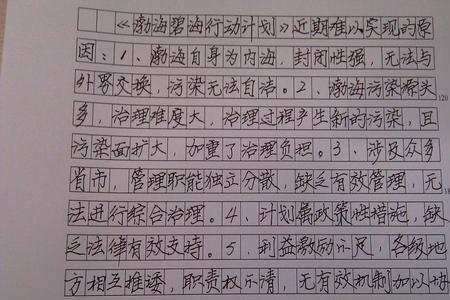 《渤海碧海行动计划》近期难以实现的原
因：1、渤海自身为内海，封闭性强，无法与
外界交换，污染无法自洁。2、渤海污染源头
120
多，治理难度大，治理过程产生新的污染，且
污染面扩大，加重了治理负担。3、涉及众多
省市，管理职能独立分散，缺乏有效管理，无
法进行综合治理。4、计划属政策性措施，缺
乏法律有效支持。5、利益激励不足，各级地
方相互推诿，职责权不清，无有效机制加以协